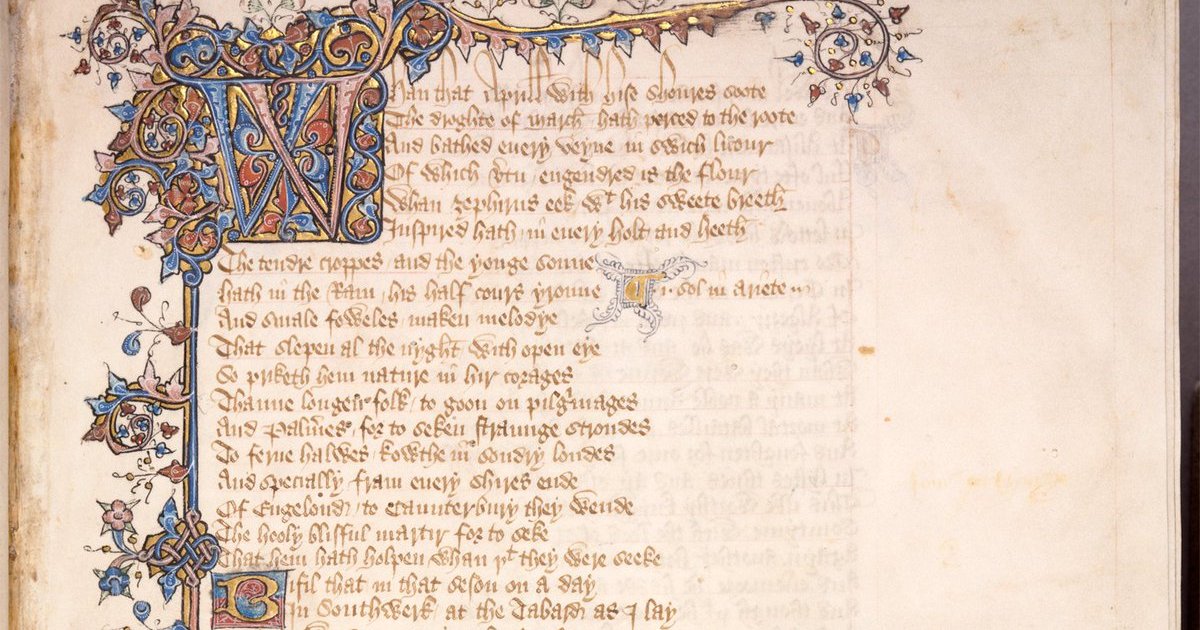 Whan that Aprill with hise shoures soote
The droghte of march hath perced to the roote
And bathed every veyne in swich licour
Of which vtu engendred is the flour
Whan zephirus eek wt his sweete breeth
Inspired hath in every holt and heeth
The tendre croppes and the yonge sonne
hath in the Ram his half cours yronne .i. sol in ariete
And smale foweles maken melodye
That slepen al the nyght with open eye
So priketh hem nature in hir corages
Thanne longen folk to goon on pilgrimages
And Palmes for to seken straunge strondes
To ferne halwes kowthe in sondry londes
And specially fram every shires ende
Of Engelond to Caunterbury they wende
The hooly blisful martir for to seke
That hem hath holpen whan yt they were seeke
Bifil that in that seson on a day
In Southwerk at the Tabard as I lay